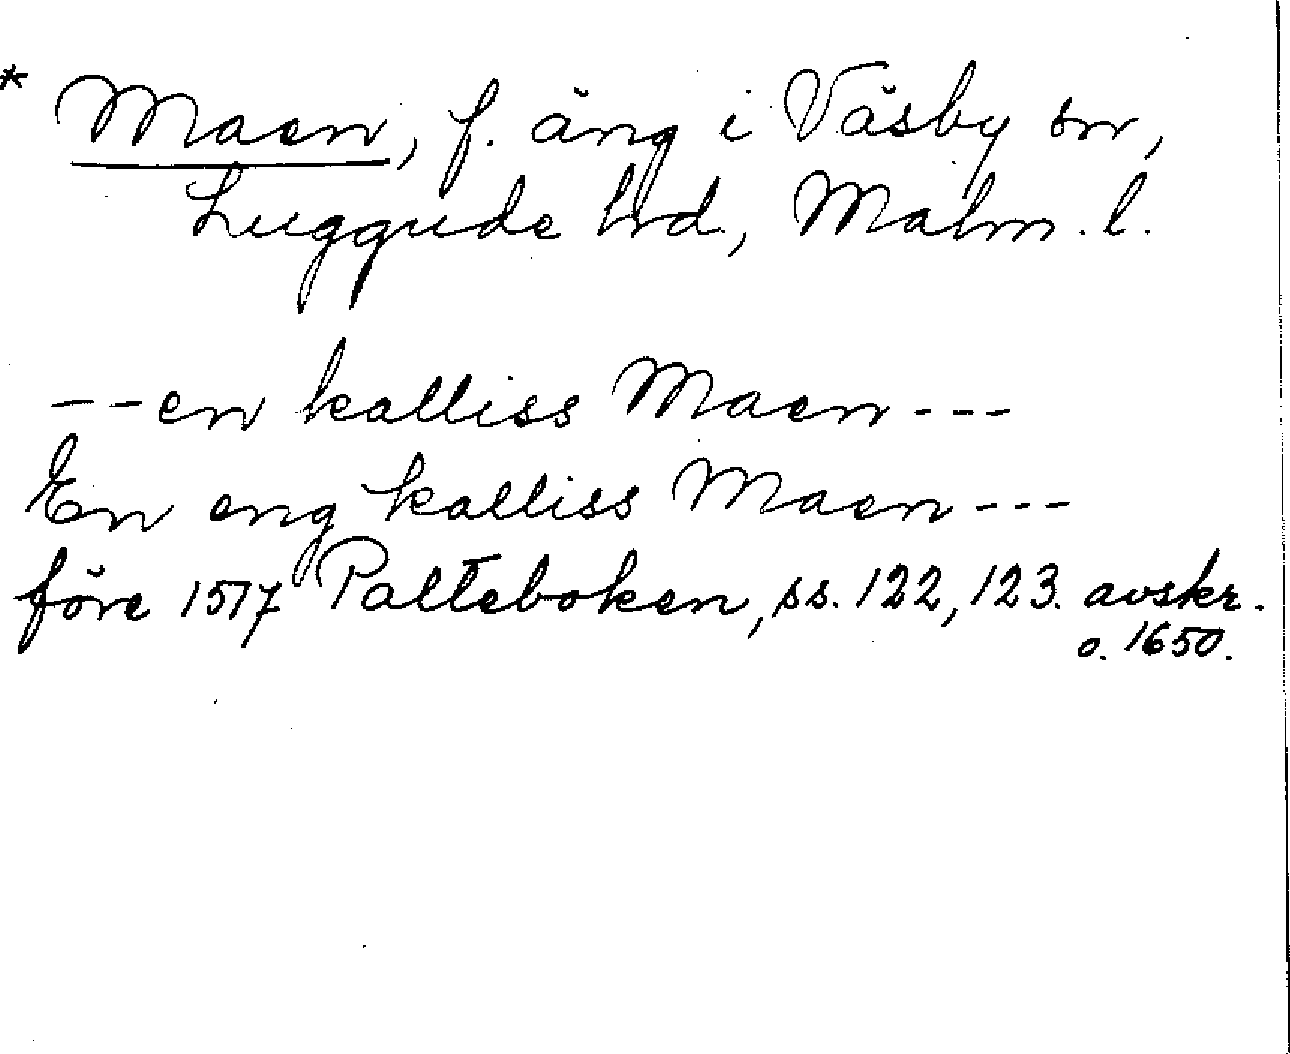 * Maen, f. äng i Väsby sn,
Luggude hd., Malm. l.
--en kalliss Maen---
En eng kalliss Maen---
före 1517 Palteboken, ss. 122, 123. avskr.
o. 1650.